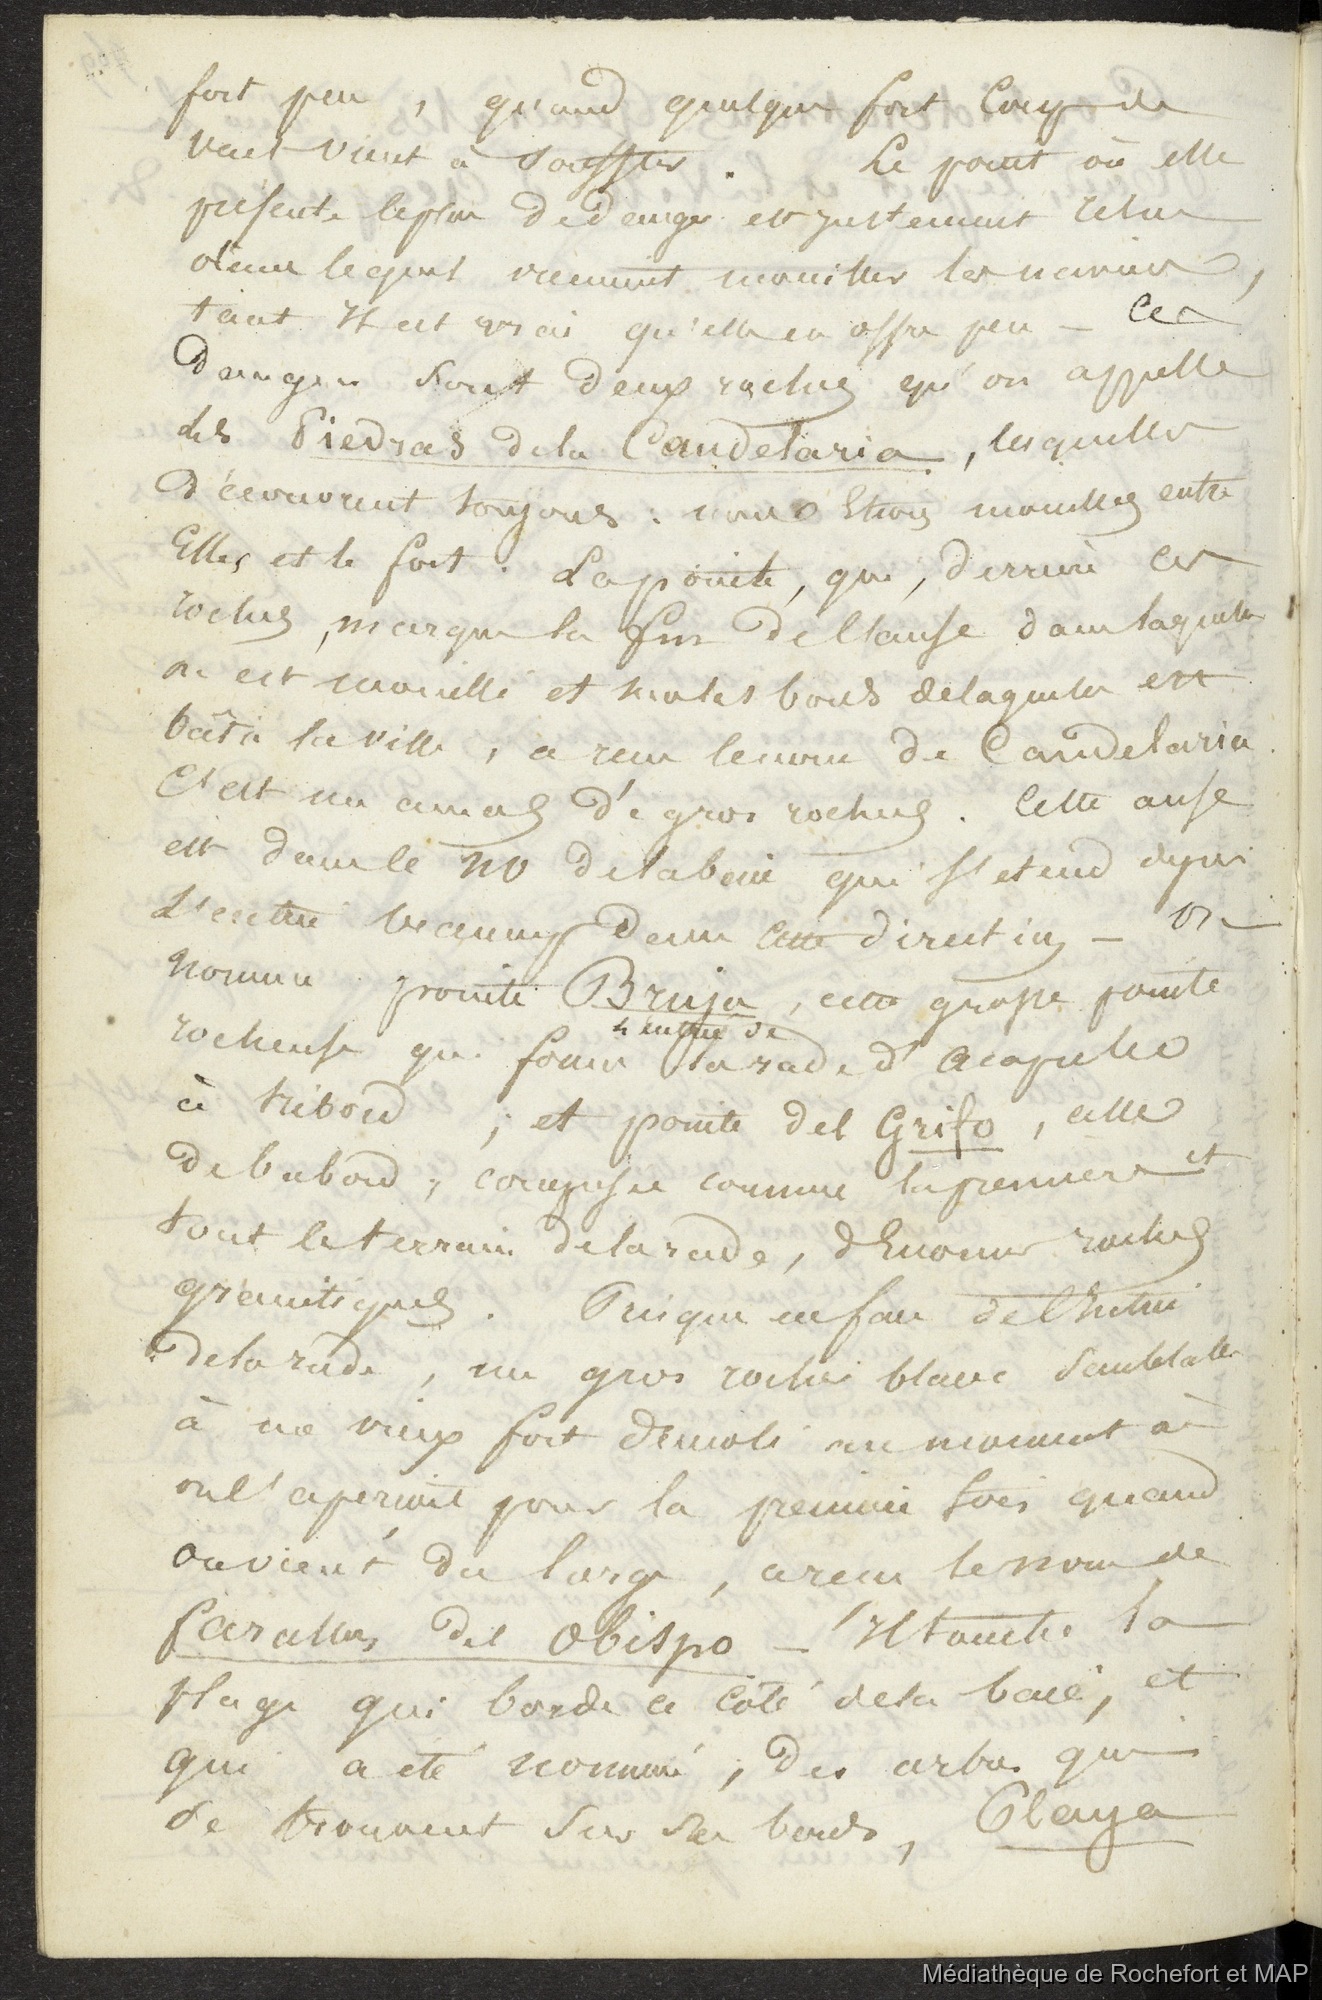 fort peu, quand quelque fort Coup de
vent vient à souffler. Le point où elle
présente le plus de danger est justement celui
dans lequel viennent mouiller les navires,
tant il est vrai qu'elle en offre peu — Ces
dangers sont deux roches qu'on appelle
les Piedras de la Candelaria, lesquelles
découvrent toujours : nous étions mouillés entre
Elles et le fort. La pointe, qui, derrière ces
roches, marque la fin de l'anse dans laquelle
on est mouillé et sur les bords de laquelle est
bâtie la ville, a reçu le nom de Candelaria.
C'est un amas de gros rochers. Cette anse
est dans le NO de la baie qui s'etend depuis
L'entrée dans cette direction — On
nomme pointe Bruja, cette grosse pointe
rocheuse qui forme l'entrée de la rade d'Acapulco
à tribord ; et pointe del Grifo, celle
de babord ; composée comme la première et
tout le terrain de la rade, d'Enormes roches
granitiques. Presque en face de l'Entrée
de la rade, un gros rocher blanc semblable
à un vieux fort démoli au moment où
on l'aperçoit pour la première fois quand
on vient du large, a reçu le nom de
Farallon del Obispo — Il touche la
plage qui borde ce côté de la baie, et
qui a été nommé, des arbres qui
se trouvent sur ses bords, Playa
Médiathèque de Rochefort et MAP